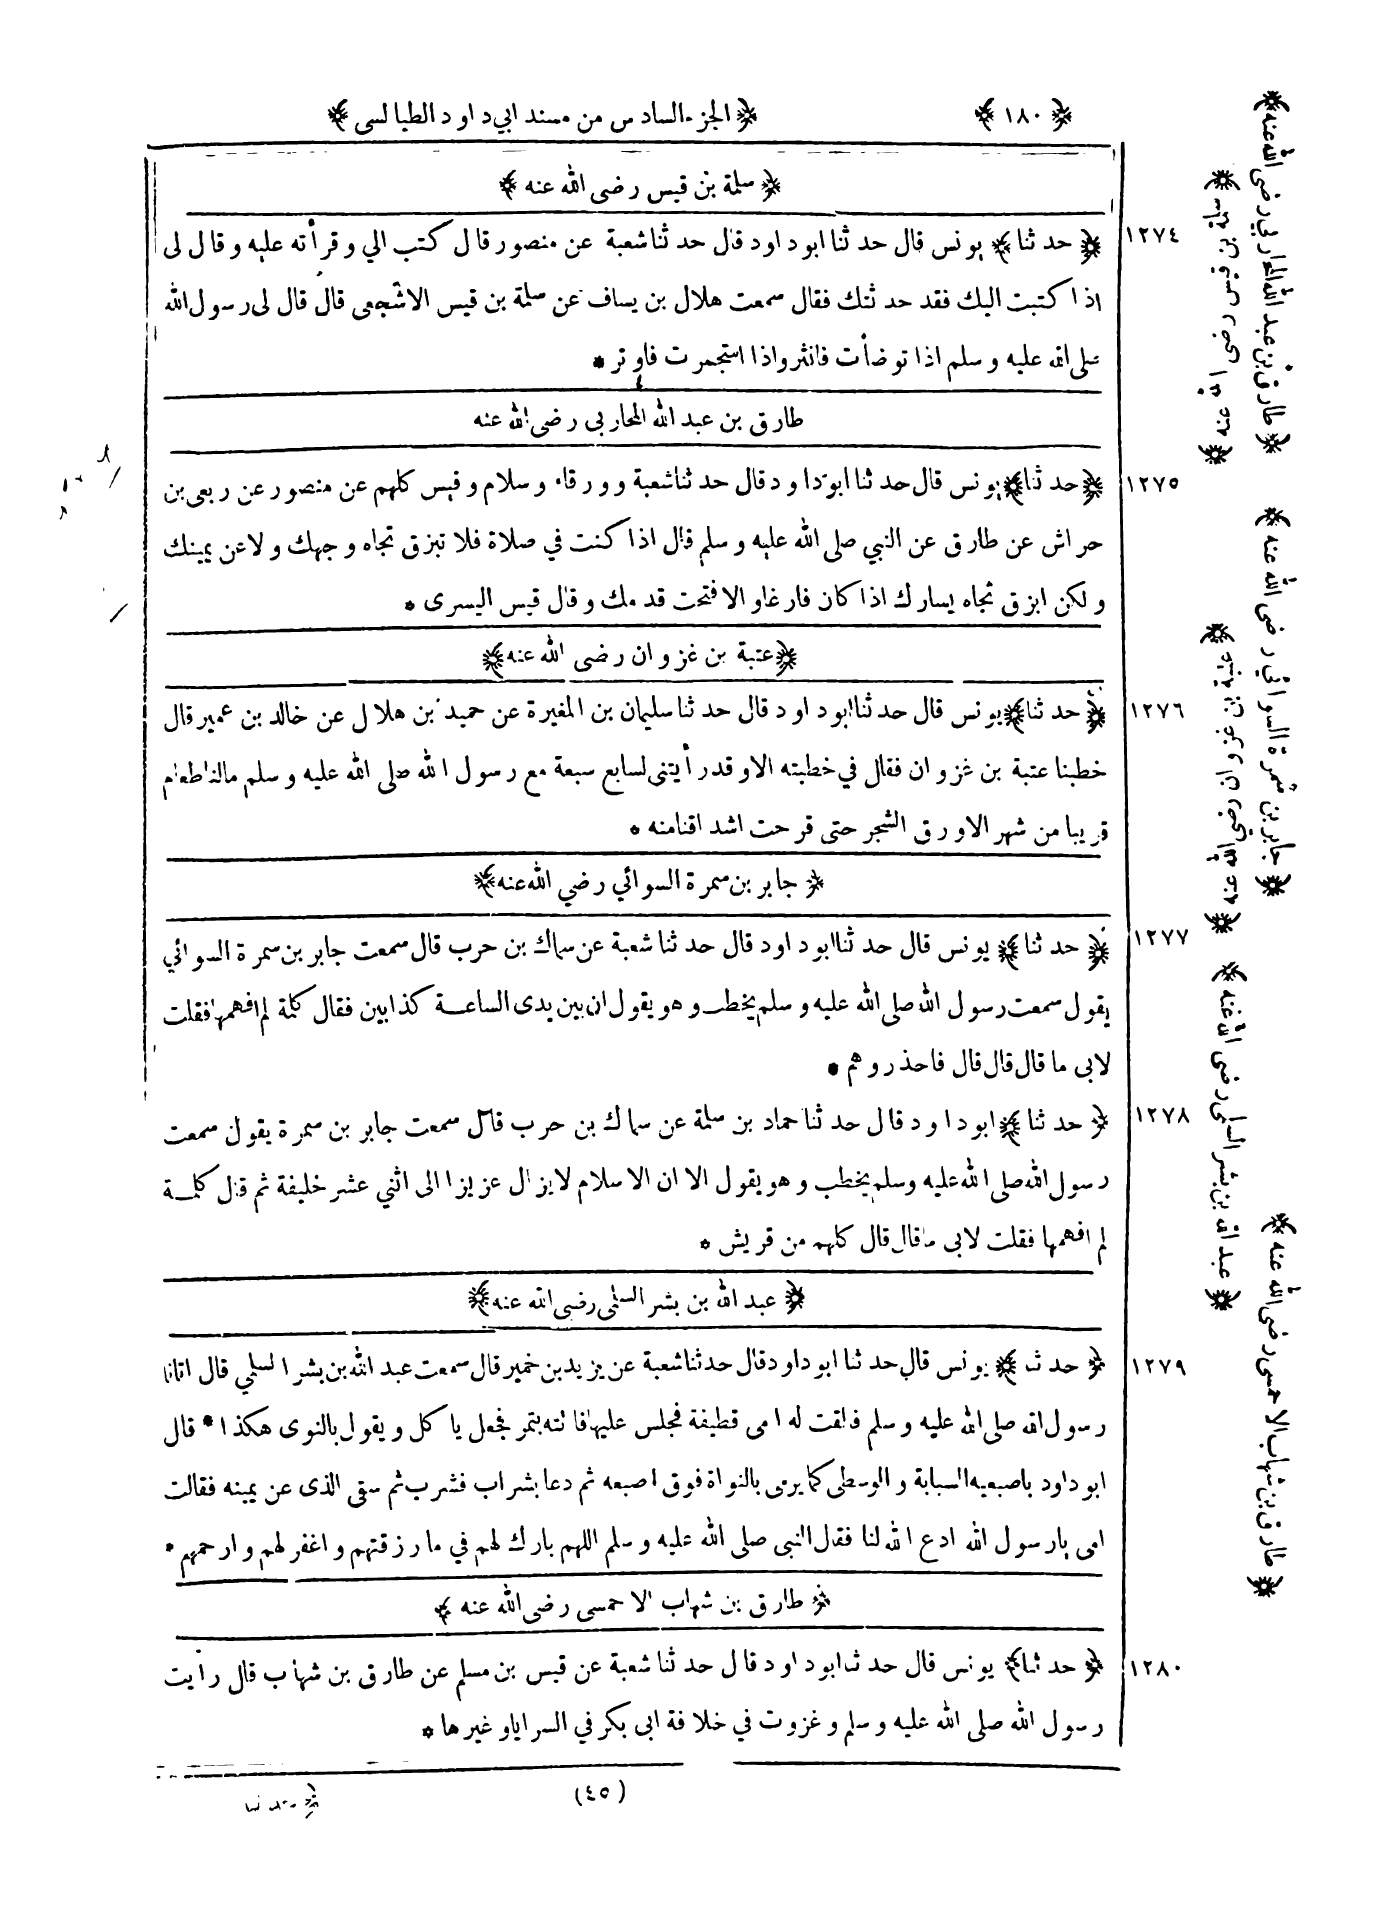 ﴿١٨٠﴾ ﴿الجزء السادس من مسند ابي داود الطيالسى﴾
﴿سلمة بن قيس رضى الله عنه﴾
١٢٧٤ ﴿حدثنا﴾ يونس قال حدثنا ابو داود قال حدثنا شعبة عن منصور قال كتب الي وقرأته عليه وقال لى
اذا كتبت اليك فقد حدثتك فقال سمعت هلال بن يساف عن سلمة بن قيس الاشجعى قال قال لى رسول الله
صلى الله عليه وسلم اذا توضأت فانثر واذا استجمرت فاوتر *
طارق بن عبد الله المحاربي رضى الله عنه
١٢٧٥ ﴿حدثنا﴾ يونس قال حدثنا ابو داود قال حدثنا شعبة وورقاء وسلام وقيس كلهم عن منصور عن ربعى بن
حراش عن طارق عن النبي صلى الله عليه وسلم قال اذا كنت في صلاة فلا تبزق تجاه وجهك ولا عن يمينك
ولكن ابزق تجاه يسارك اذا كان فارغا والا فتحت قدمك وقال قيس اليسرى *
﴿عتبة بن غزوان رضى الله عنه﴾
١٢٧٦ ﴿حدثنا﴾ يونس قال حدثنا ابو داود قال حدثنا سليمان بن المغيرة عن حميد بن هلال عن خالد بن عمير قال
خطبنا عتبة بن غزوان فقال في خطبته الا وقد رأيتنى لسابع سبعة مع رسول الله صلى الله عليه وسلم مالنا طعام
قريبا من شهر الا ورق الشجر حتى قرحت اشداقنا منه *
﴿جابر بن سمرة السوائي رضي الله عنه﴾
١٢٧٧ ﴿حدثنا﴾ يونس قال حدثنا ابو داود قال حدثنا شعبة عن سماك بن حرب قال سمعت جابر بن سمرة السوائي
يقول سمعت رسول الله صلى الله عليه وسلم يخطب وهو يقول ان بين يدى الساعة كذابين فقال كلمة لم افهمها فقلت
لابى ما قال قال قال فاحذروهم *
١٢٧٨ ﴿حدثنا﴾ ابو داود قال حدثنا حماد بن سلمة عن سماك بن حرب قال سمعت جابر بن سمرة يقول سمعت
رسول الله صلى الله عليه وسلم يخطب وهو يقول الا ان الاسلام لا يزال عزيزا الى اثني عشر خليفة ثم قال كلمة
لم افهمها فقلت لابى ما قال قال كلهم من قريش *
﴿عبد الله بن بشر السلمى رضى الله عنه﴾
١٢٧٩ ﴿حدثنا﴾ يونس قال حدثنا ابو داود قال حدثنا شعبة عن يزيد بن خمير قال سمعت عبد الله بن بشر السلمي قال اتانا
رسول الله صلى الله عليه وسلم فالقت له امى قطيفة فجلس عليها فاتته بتمر فجعل ياكل ويقول بالنوى هكذا * قال
ابو داود باصبعيه السبابة والوسطى كما يرمى بالنواة فوق اصبعه ثم دعا بشراب فشرب ثم سقى الذى عن يمينه فقالت
امى يا رسول الله ادع الله لنا فقال النبى صلى الله عليه وسلم اللهم بارك لهم في ما رزقتهم واغفر لهم وارحمهم *
﴿طارق بن شهاب الاحمسى رضى الله عنه﴾
١٢٨٠ ﴿حدثنا﴾ يونس قال حدثنا ابو داود قال حدثنا شعبة عن قيس بن مسلم عن طارق بن شهاب قال رأيت
رسول الله صلى الله عليه وسلم وغزوت في خلافة ابى بكر في السرايا وغيرها *
(٤٥)
﴿حدثنا
﴿طارق بن عبد الله المحاربي رضى الله عنه﴾
﴿جابر بن سمرة السوائي رضى الله عنه﴾
﴿عبد الله بن بشر السلمى رضى الله عنه﴾
﴿طارق بن شهاب الاحمسى رضى الله عنه﴾